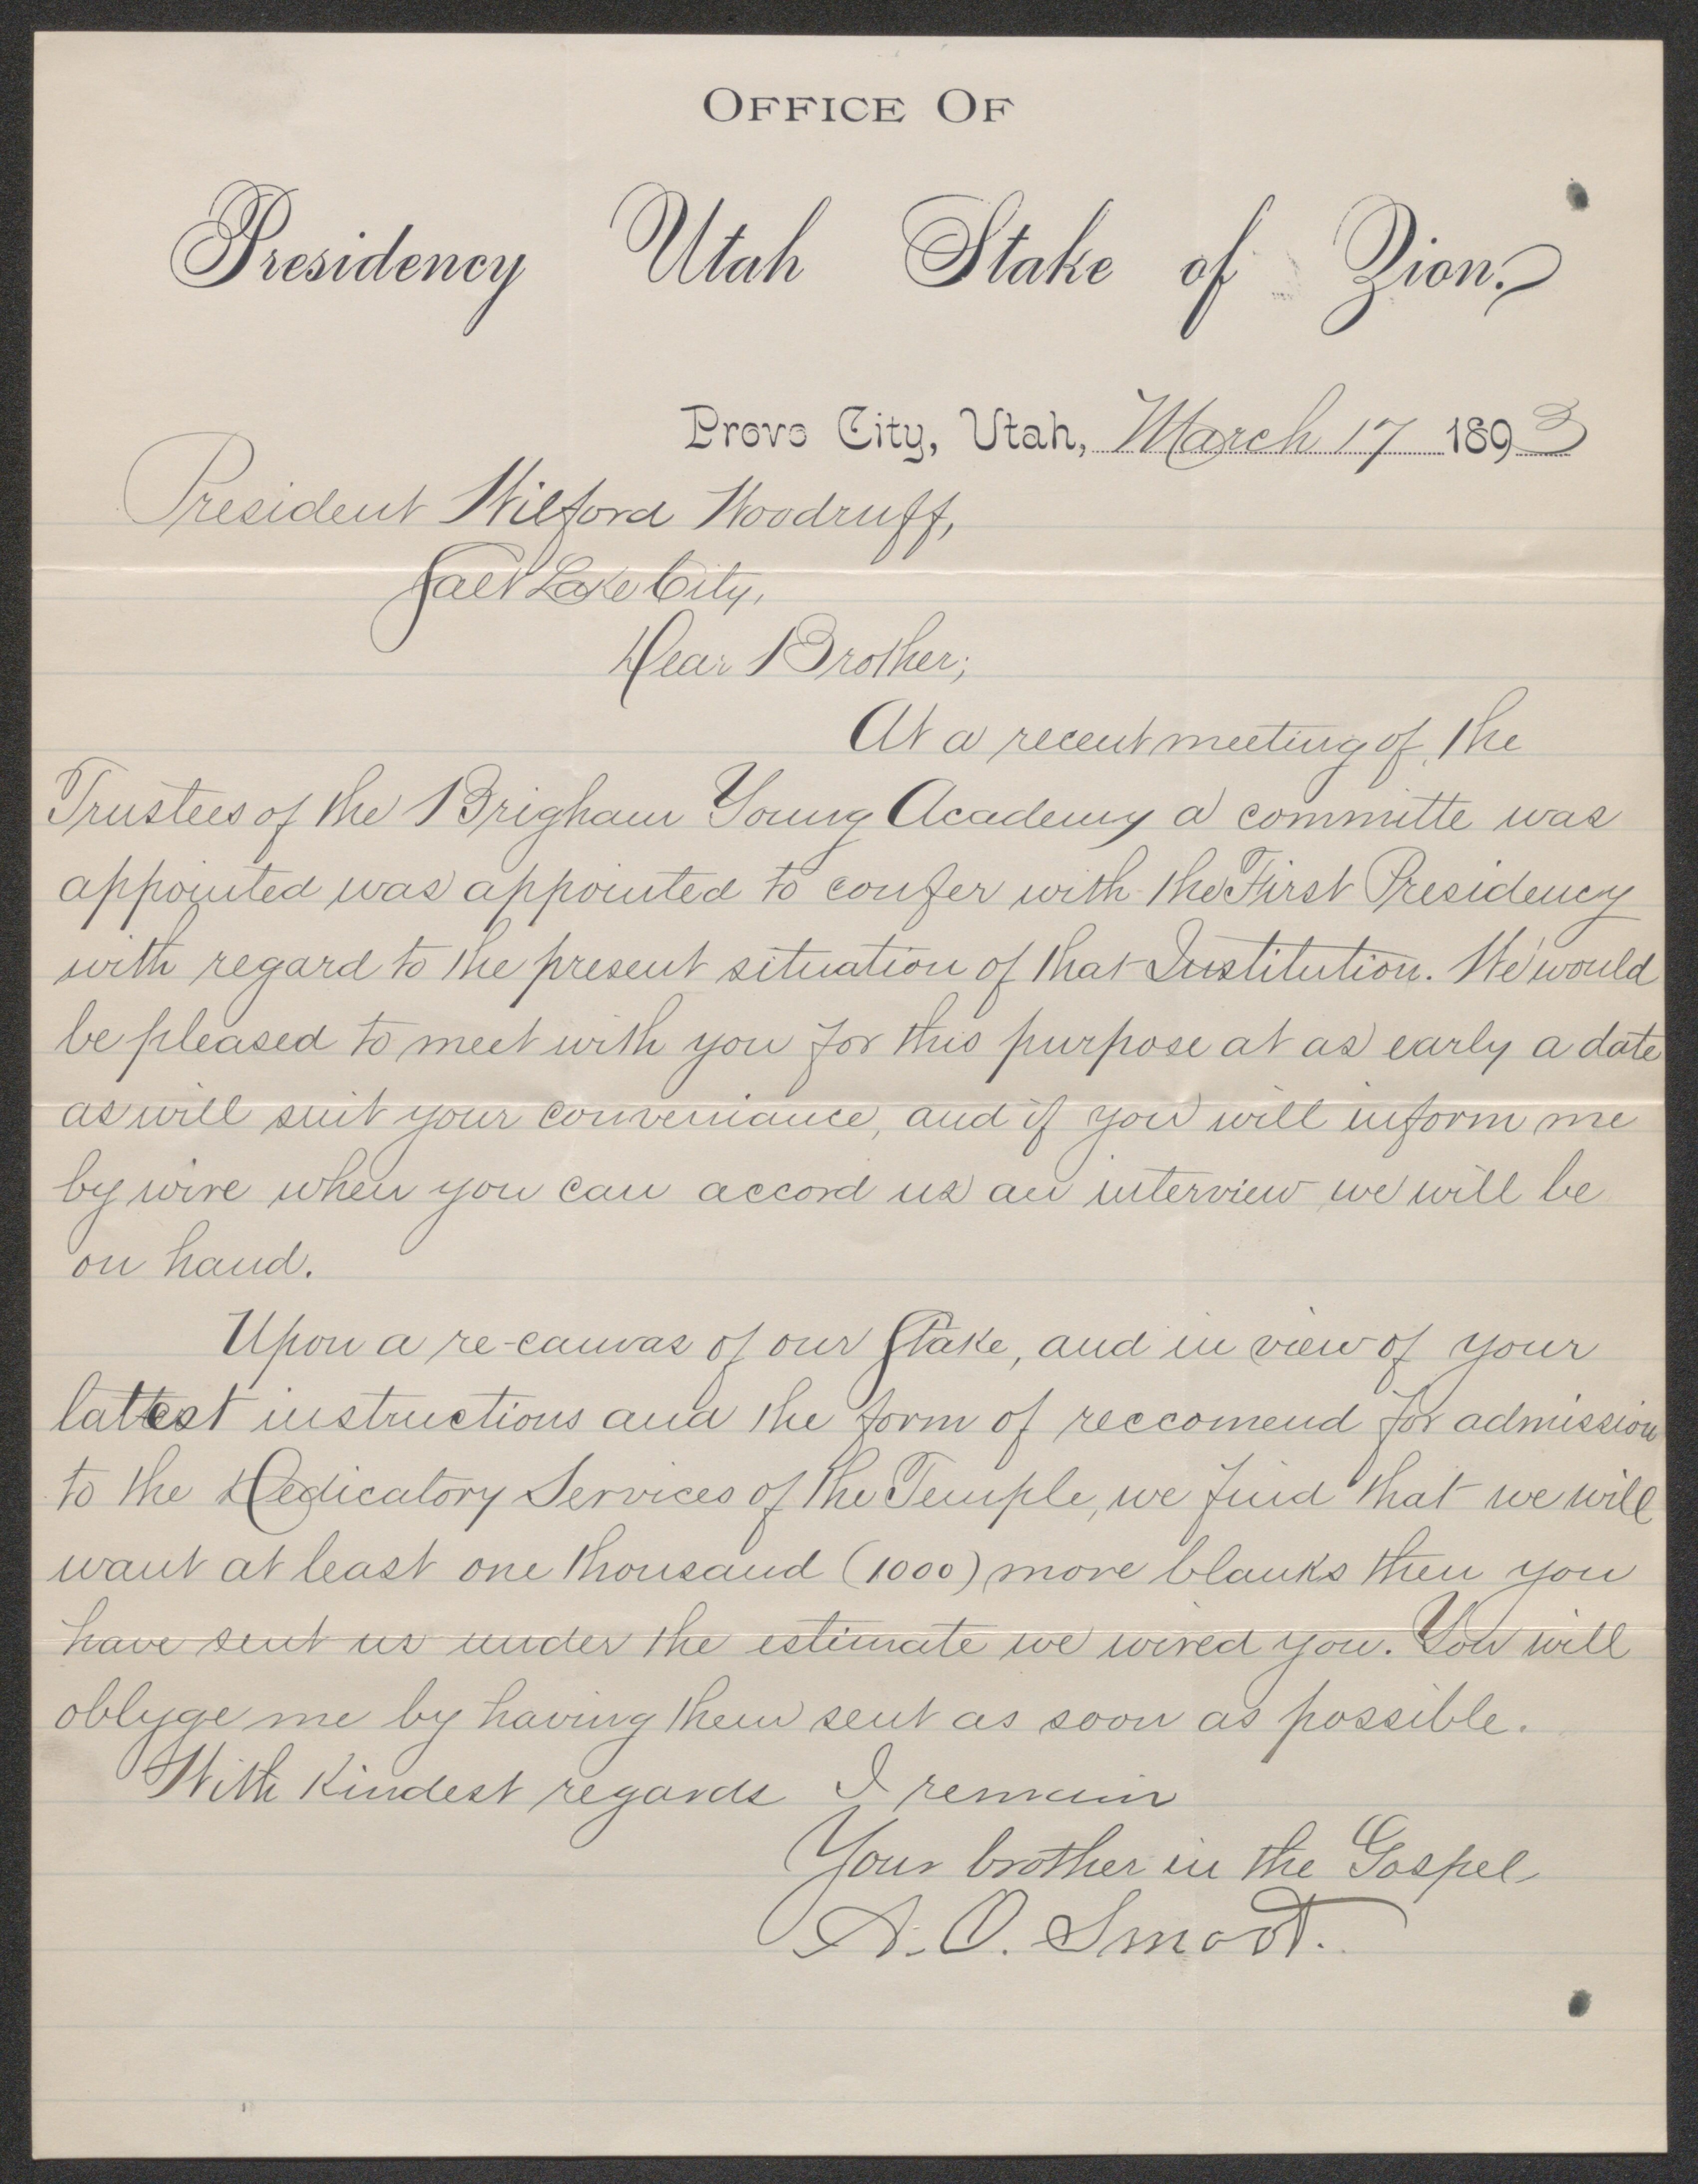 OFFICE OF
Presidency Utah Stake of Zion.
Provo City, Utah, March 17 1893
President Wilford Woodruff,
Salt Lake City,
Dear Brother;
At a recent meeting of the
Trustees of the Brigham Young Academy a committe was
appointed was appointed to confer with the First Presidency
with regard to the present situation of that Institution. We would
be pleased to meet with you for this purpose at as early a date
as will suit your conveniance, and if you will inform me
by wire when you can accord us an interview we will be
on hand.
Upon a re-canvas of our Stake, and in view of your
lattest instructions and the form of reccomend for admission
to the Dedicatory Services of the Temple, we find that we will
want at least one thousand (1000) more blanks then you
have sent us under the estimate we wired you. You will
oblyge me by having them sent as soon as possible.
With kindest regards I remain
Your brother in the Gospel
A. O. Smoot.